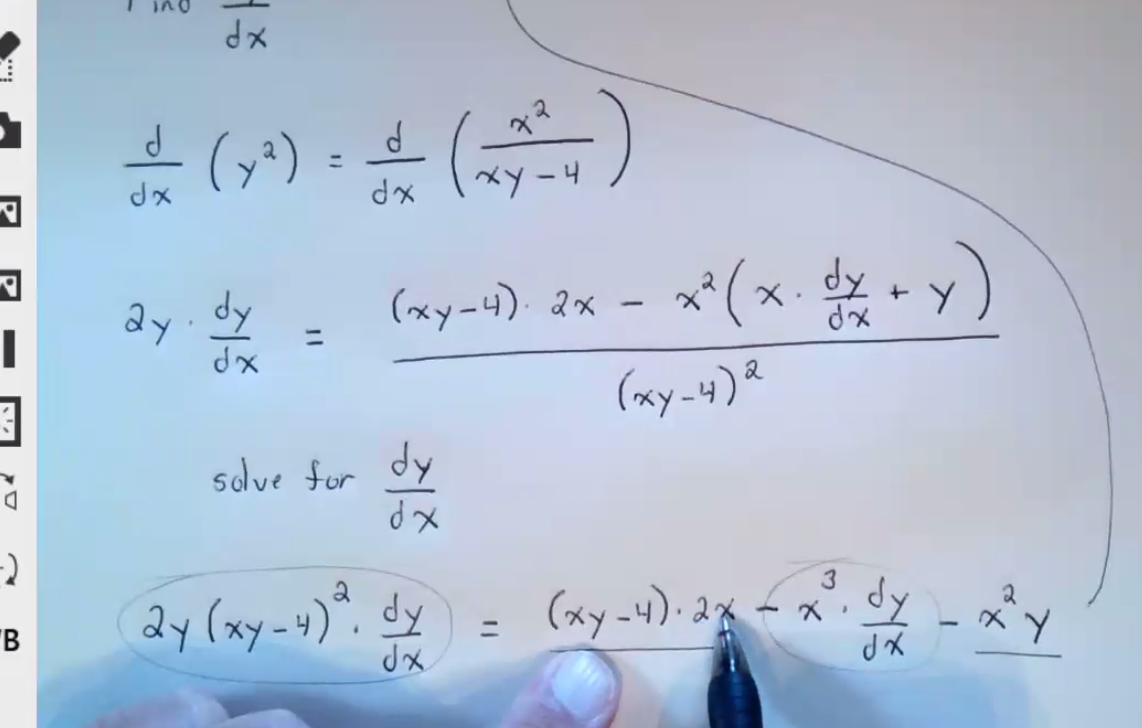 Find dy/dx
d/dx (y²) = d/dx (x²/(xy-4))
2y · dy/dx = ((xy-4) · 2x - x²(x · dy/dx + y))/(xy-4)²
solve for dy/dx
2y(xy-4)² · dy/dx = (xy-4) · 2x - x³ · dy/dx - x²y